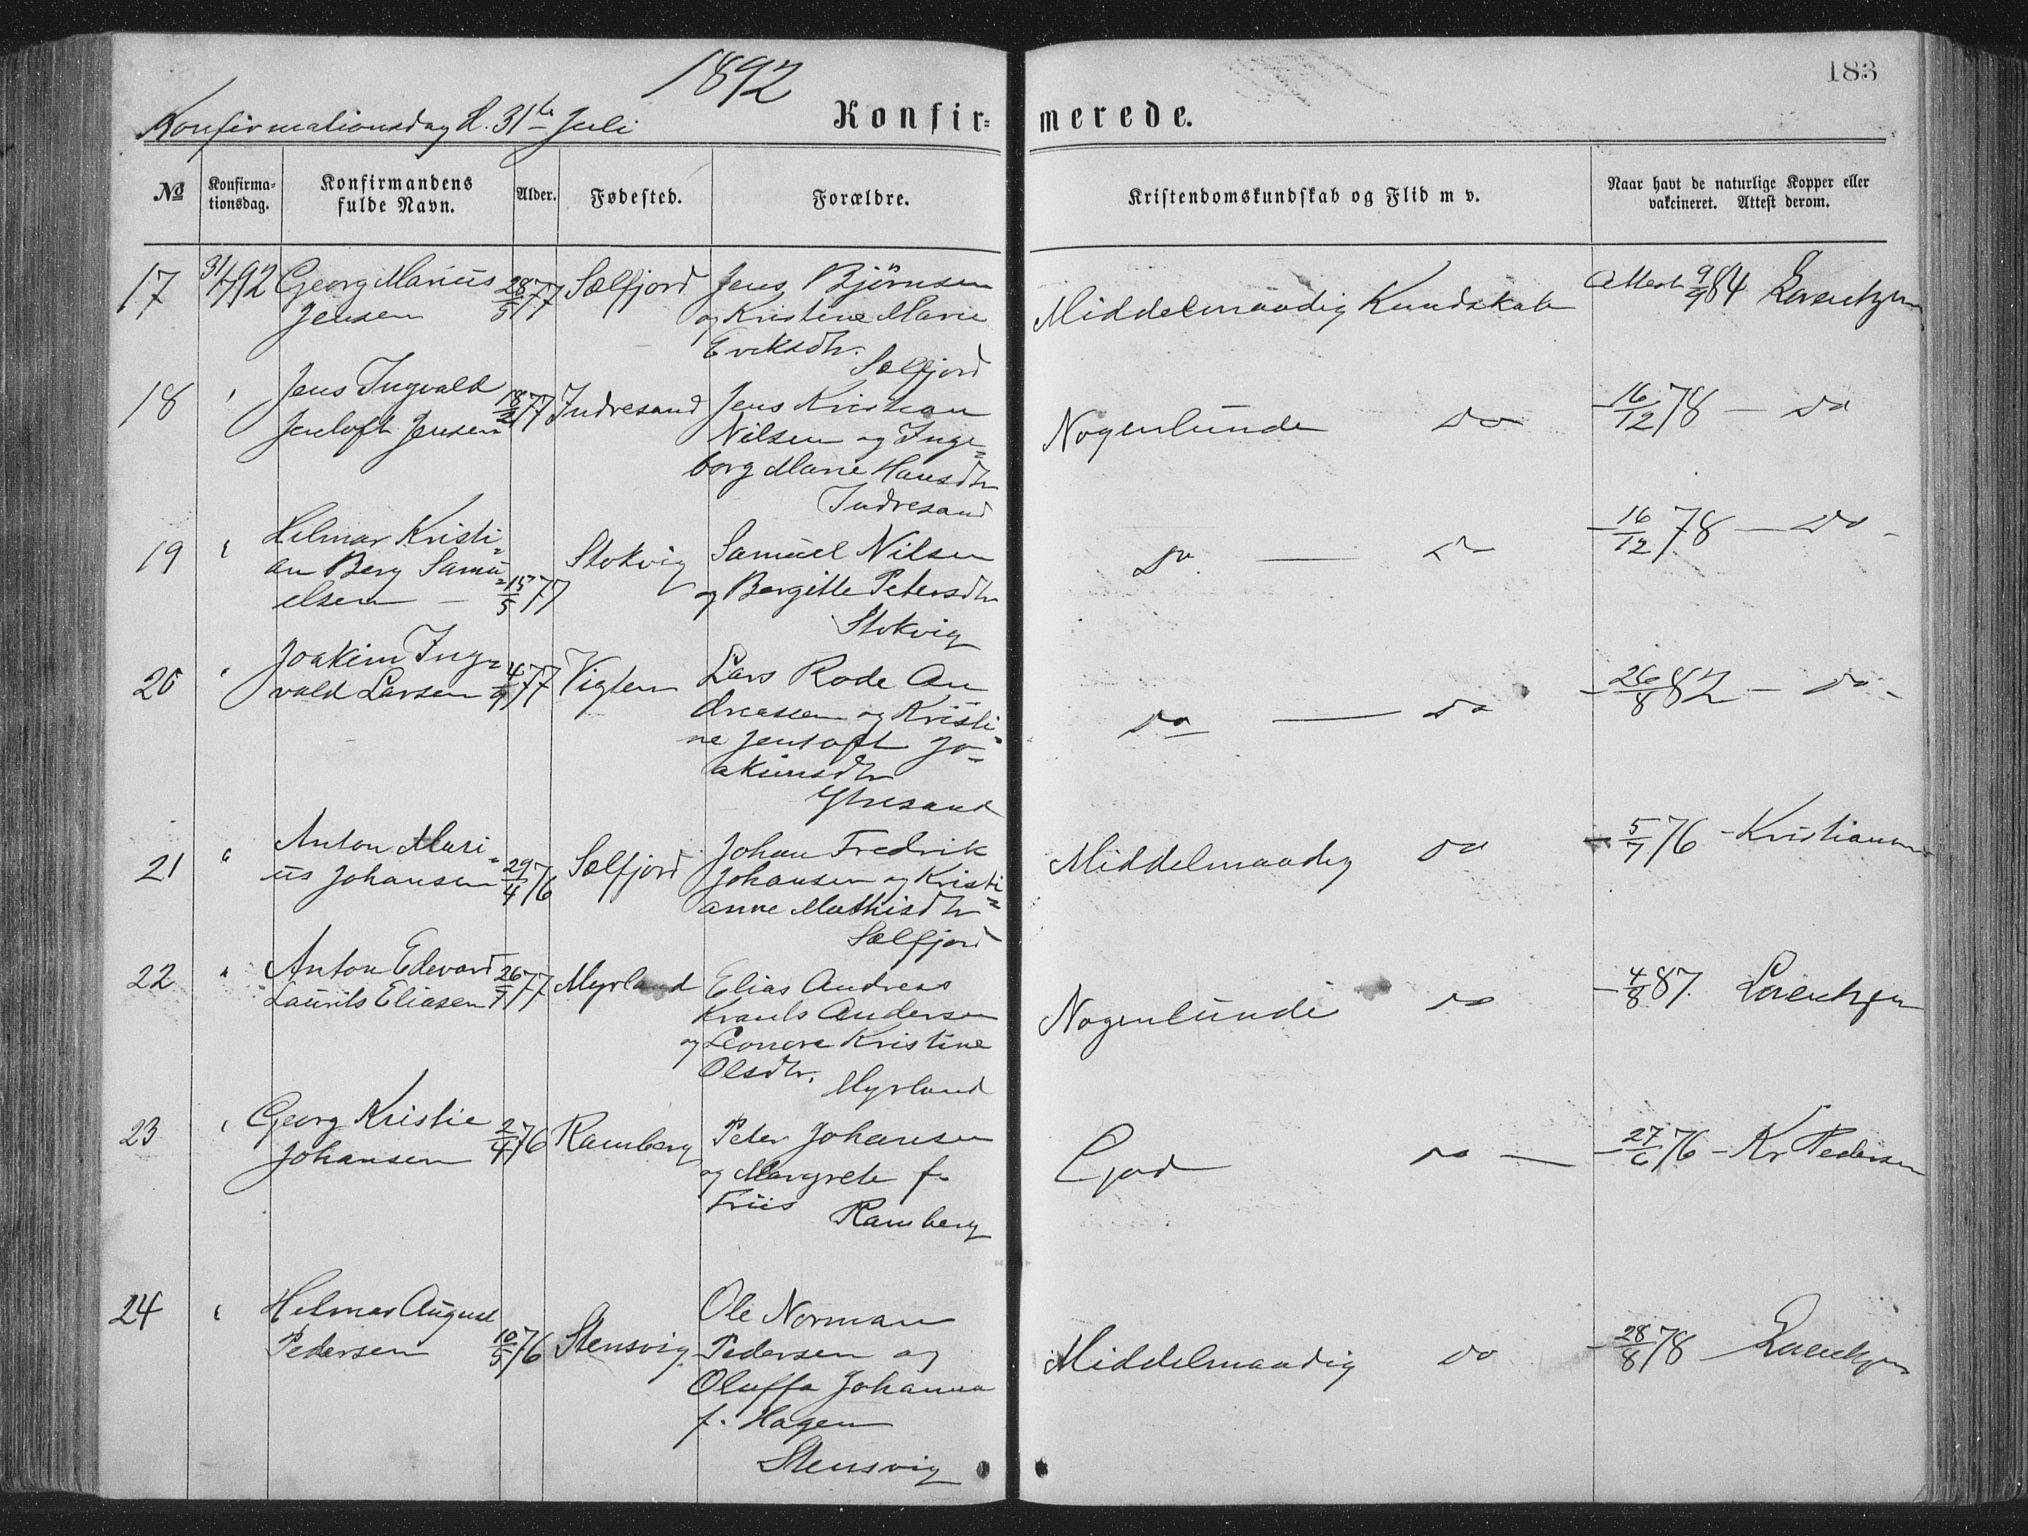 1892
183
Konfirmationsdag d. 31te Juli
Konfir-
merede.
No
Konfirma-
tionsdag.
Konfirmandens
fulde Navn.
Alder.
Fødested.
Forældre.
Kristendomskundskab og Flid m v.
Naar havt de naturlige Kopper eller
vakcineret. Attest derom.
17 31/7 92 Georg Marius 28/5 77 Sælfjord Jens Björnsen
Jensen og Kristine Marie
Eriksdtr.
Sælfjord
Middelmaadig Kundskab Attest 9/9 84 Lorentzen
18 " Jens Ingvald 18/2 77 Indresand Jens Kristian
Jentoft Jensen Nilsen og Inge=
borg Marie Hansdtr
Indresand
Nogenlunde do - 16/12 78 - do
19 " Hilmar Kristi= Stokvig Samuel Nilsen
an Berg Samu= og Bergitte Petersdtr
elsen - 15/5 77
Stokvig
do — do - 16/12 78 - do -
20 " Joakim Ing= 4/9 77 Vigten Lars Rode An
vald Larsen dreassen og Kristi=
ne Jentoft Jo=
akimsdtr
Ytresand
do — do - 26/8 82 - do -
21 " Anton Mari= 29/4 76 Sælfjord Johan Fredrik
us Johansen Johansen og Kristi=
anne Mathisdtr
Sælfjord
Middelmaadig do - 5/7 76 -
22 " Anton Edevard 26/7 77 Myrland Elias Andreas
Laurits Eliasen Krants Andersen
og Leonore Kristine
Olsdtr.
Myrland
Nogenlunde do - 4/8 87. Lorentzen
23 " Georg Kristie 2/4 76 Ramberg Peter Johansen
Johansen og Margrete f.
Friis Ramberg
God do — - 27/6 76 - Kr Pedersen
24 " Hilmar August Ole Norman
Pedersen 10/5 76 Stensvig Pedersen og
Oluffa Johanna
f. Hagen
Stensvig
Middelmaadig do - 28/8 78 - Lorentzen